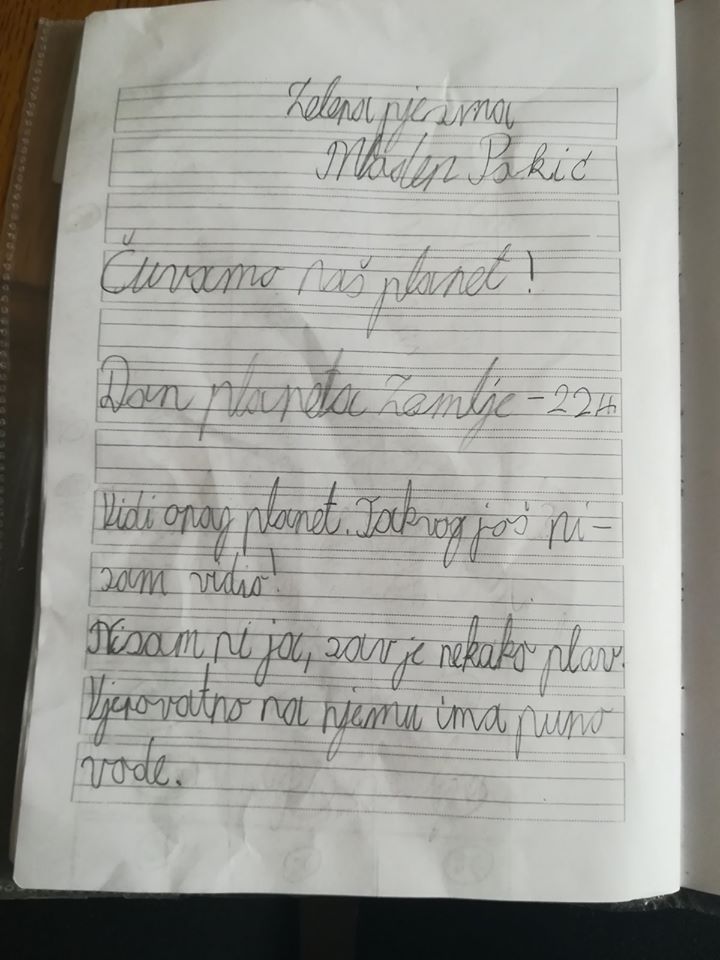 Zelena pjesma
Mladen Pokić
Čuvamo naš planet!
Dan planeta Zemlje - 22
Vidi onaj planet. Takvog još ni-
sam vidio!
Nisam ni ja, sav je nekako plav.
Vjerovatno na njemu ima puno
vode.